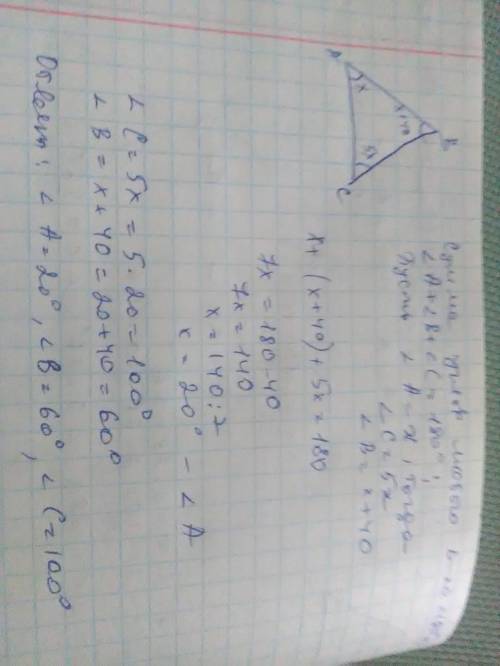 Сумма углов любого
∠A+∠B+∠C=180°;
Пусть ∠A=x, тогда
∠C=5x
∠B=x+40
B
x+40
A
x
5x
C
x+(x+40)+5x=180
7x=180-40
7x=140
x=140:7
x=20° - ∠A
∠C=5x=5·20=100°
∠B=x+40=20+40=60°
Ответ: ∠A=20°, ∠B=60°, ∠C=100°